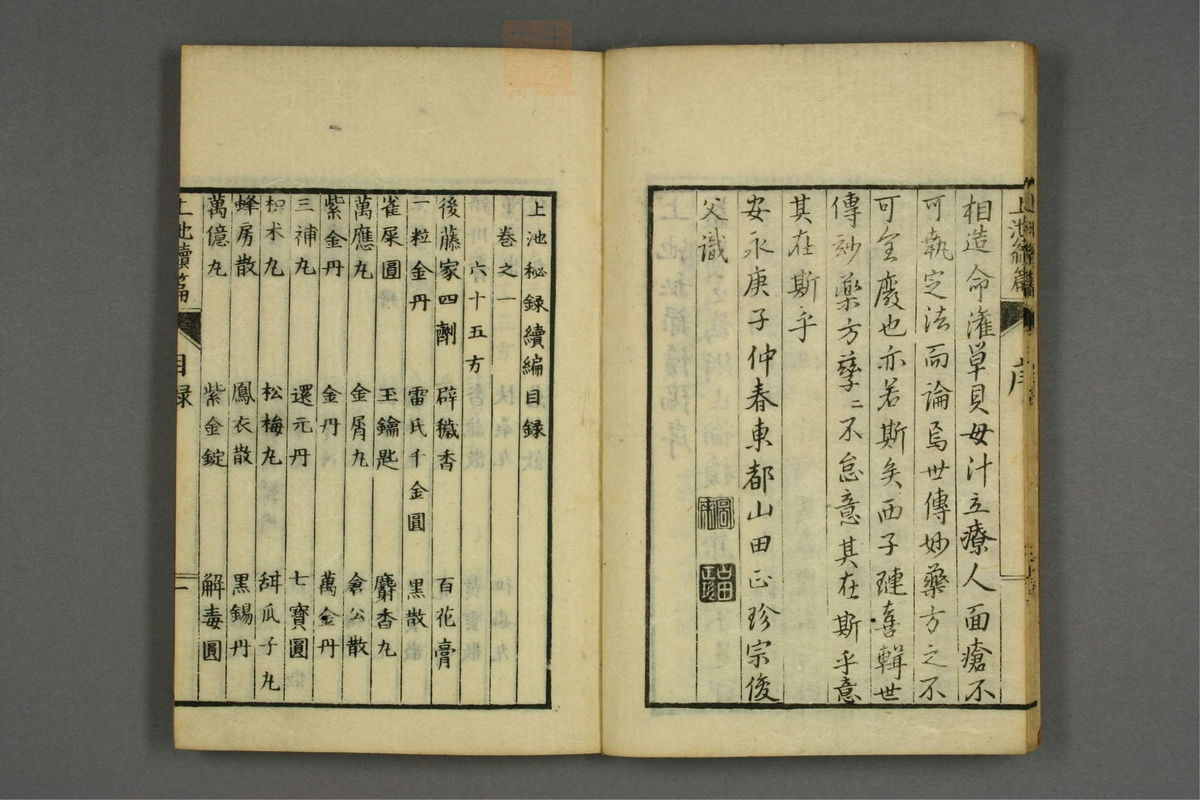 相造命潅草貝母汁立療人面瘡不
可執定法而論焉世傳妙藥方之不
可全廢也亦若斯矣西子璉喜輯世
傳妙藥方孳〻不怠意其在斯乎意
其在斯乎
安永庚子仲春東都山田正珍宗俊
父識
上池秘録續編目録
卷之一
六十五方
後藤家四劑 辟穢香 百花膏
一粒金丹 雷氏千金圓 黑散
雀屎圓 玉鑰匙 麝香丸
萬應丸 金屑丸 倉公散
紫金丹 金丹 萬金丹
三補丸 還元丹 七寶圓
枳朮丸 松梅丸 甜瓜子丸
蜂房散 鳳衣散 黑錫丹
萬億丸 紫金錠 解毒圓
上池續篇 目録 一